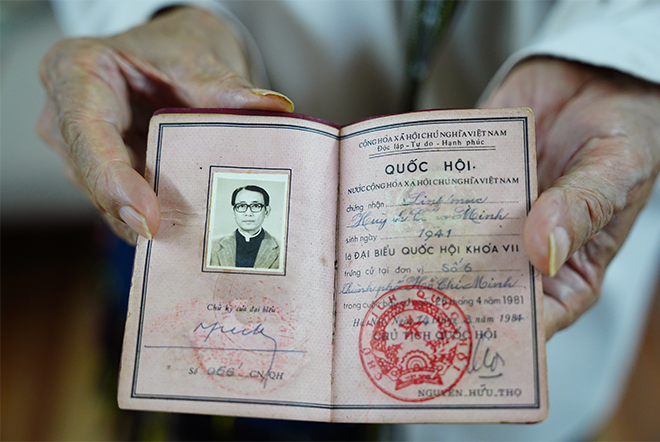 Chữ ký của đại biểu
Số 066 CN/QH
CỘNG HÒA XÃ HỘI CHỦ NGHĨA VIỆT NAM
Độc lập - Tự do - Hạnh phúc
QUỐC HỘI
NƯỚC CỘNG HÒA XÃ HỘI CHỦ NGHĨA VIỆT NAM
chứng nhận Linh mục
Minh
sinh ngày 1941
là ĐẠI BIỂU QUỐC HỘI KHÓA VII
trúng cử tại đơn vị Số 6
Thành phố Hồ Chí Minh
trong cuộc bầu tháng 4 năm 1981
Hà Nội 1981
CHỦ TỊCH QUỐC HỘI
NGUYỄN HỮU THỌ